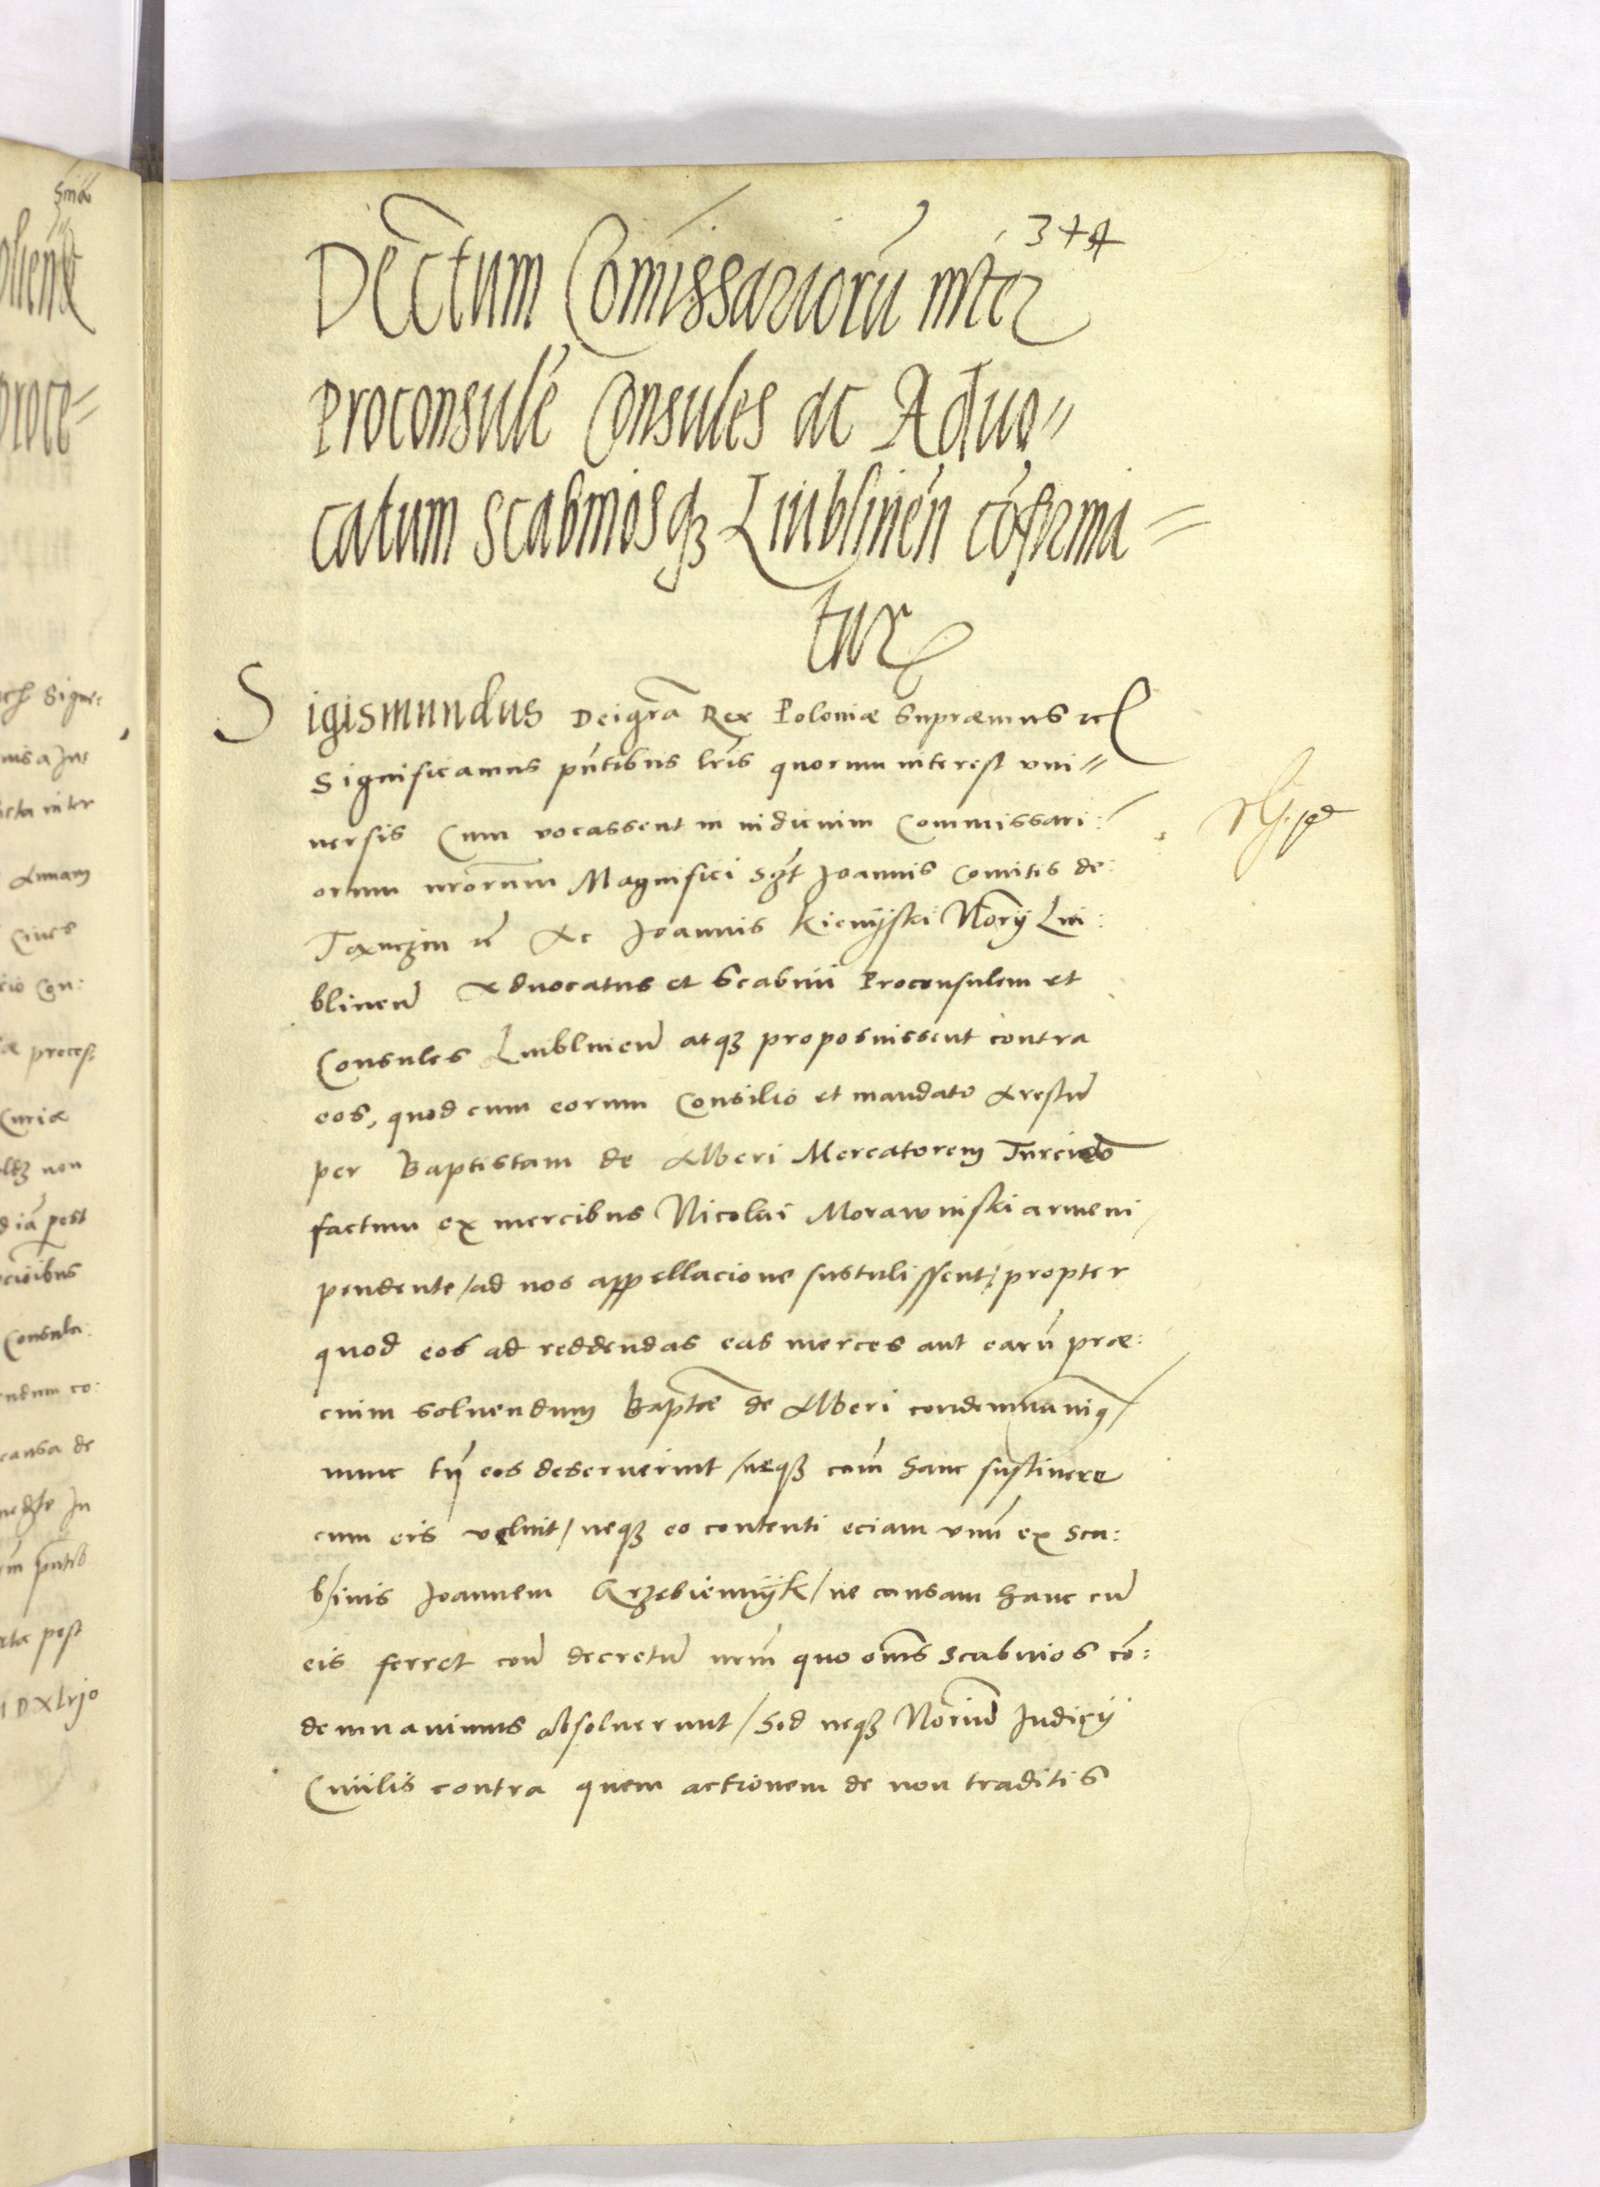 374
Decretum Comissariorũ inter
Proconsulẽ Consules ac Aduo=
catum scabinosq3 Liublineñ cõfirma=
tur
Sigismundus Dei gra Rex Poloniæ Supræmus etc
Significamus pñtibus lris quorum interest vni=
uersis Cum vocassent in iudicium Commissari:
orum nrorum Magnifici sgt Joannis Comitis de
Taxnczin etc Ac Joannis Kiemÿski Norÿ Lu:
blineñ Aduocatus et Scabini Proconsulem et
Consules Liublineñ atq3 proposuissent contra
eos, quod cum eorum Consilio et mandato Arestũ
per Baptistam de Alberi Mercatorem Turcicũ
factum ex mercibus Nicolai Morawinski armeni
pendente / ad nos appellacione sustulissent / propter
quod eos ad reddendas eas merces aut earũ præ:
cium soluendum Baptæ de Alberi condemnauimq /
nunc tñ eos deseruerint / neq3 cam̃ hanc sustinere
cum eis velint / neq3 eo contenti eciam vnũ ex Sca:
binis Joannem Grzebiennÿk / ne causam hanc cũ
eis ferret con̄ decretũ nrm̃ quo oms̃ Scabinos cõ:
demnauimus absoluerunt / Sed neq3 Noriũ Judicÿ
Ciuilis contra quem actionem de non traditis